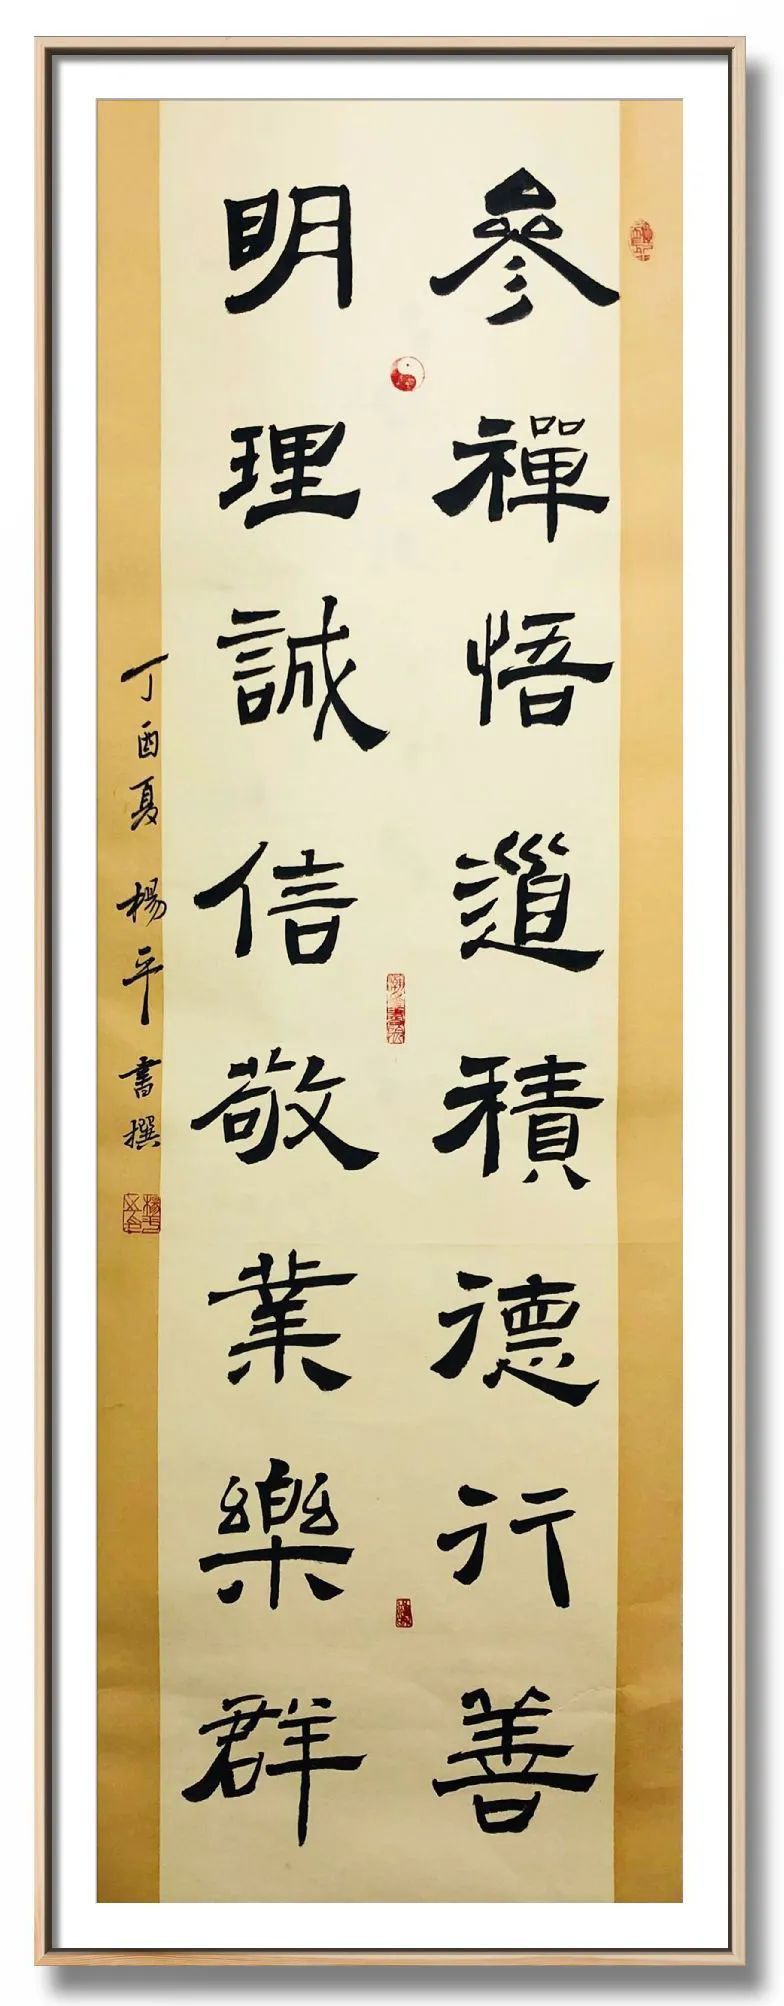 參禪悟道積德行善
明理誠信敬業樂群
丁酉夏 楊平書撰